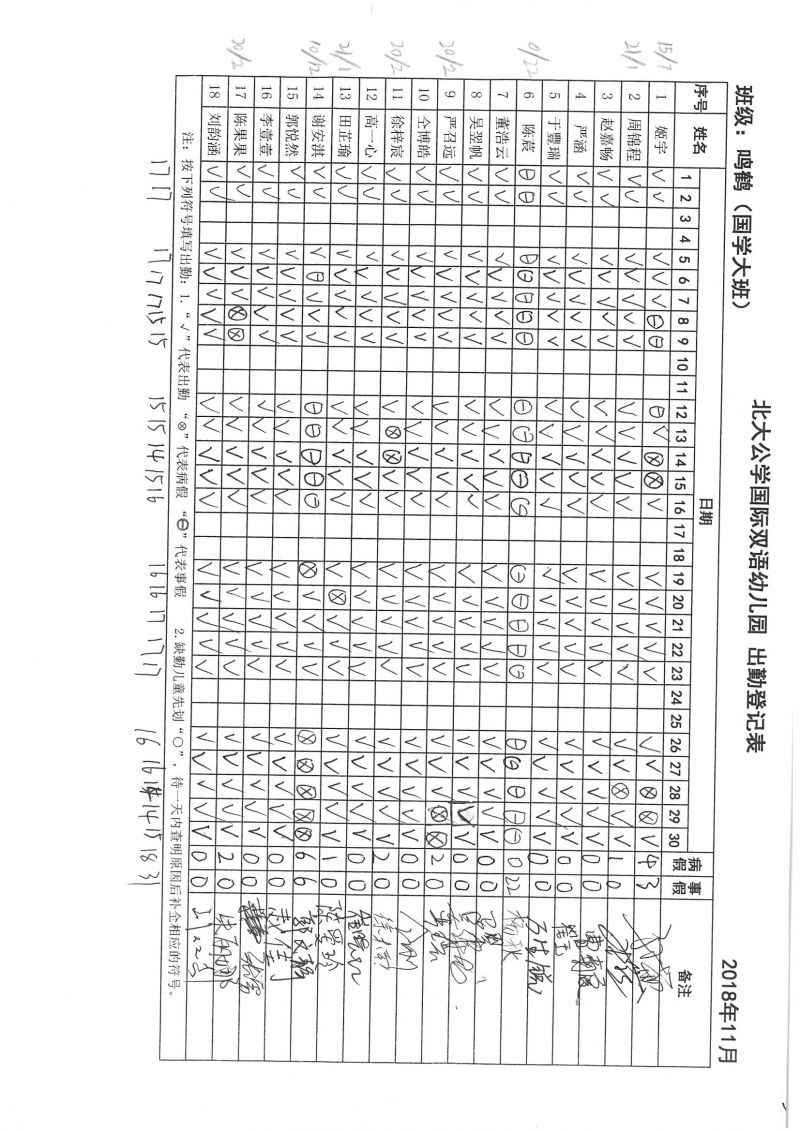 北大公学国际双语幼儿园 出勤登记表
班级：鸣鹤（国学大班） 2018年11月
序号 姓名 日期 病假 事假 备注
1 2 3 4 5 6 7 8 9 10 11 12 13 14 15 16 17 18 19 20 21 22 23 24 25 26 27 28 29 30
15/7 1 姬宇 √ √ √ √ √ ⊖ ⊖ ⊖ √ ⊗ ⊗ √ √ √ √ √ √ √ √ ⊗ ⊗ √ 4 3
21/1 2 周锦程 √ √ √ √ √ √ √ √ √ √ √ √ √ √ √ √ √ √ √ ⊗ √ √ 1 0
3 赵嘉畅 √ √ √ √ √ √ √ √ √ √ √ √ √ √ √ √ √ √ √ √ √ √ 0 0
4 严涵 √ √ √ √ √ √ √ √ √ √ √ √ √ √ √ √ √ √ √ √ √ √ 0 0
5 于豐瑞 √ √ √ √ √ √ √ √ √ √ √ √ √ √ √ √ √ √ √ √ √ √ 0 0
0/22 6 陈宸 ⊖ ⊖ ⊖ ⊖ ⊖ ⊖ ⊖ ⊖ ⊖ ⊖ ⊖ ⊖ ⊖ ⊖ ⊖ ⊖ ⊖ ⊖ ⊖ ⊖ ⊖ ⊖ 0 22
7 董浩云 √ √ √ √ √ √ √ √ √ √ √ √ √ √ √ √ √ √ √ √ √ √ 0 0
8 吴翌帆 √ √ √ √ √ √ √ √ √ √ √ √ √ √ √ √ √ √ √ √ √ √ 0 0
20/2 9 严召远 √ √ √ √ √ √ √ √ √ √ √ √ √ √ √ √ √ √ √ √ ⊗ ⊗ 2 0
10 仝博皓 √ √ √ √ √ √ √ √ √ √ √ √ √ √ √ √ √ √ √ √ √ √ 0 0
20/2 11 徐梓宸 √ √ √ √ √ √ √ √ ⊗ ⊗ √ √ √ √ √ √ √ √ √ √ √ √ 2 0
12 高一心 √ √ √ √ √ √ √ √ √ √ √ √ √ √ √ √ √ √ √ √ √ √ 0 0
21/1 13 田芷瑜 √ √ √ √ √ √ √ √ √ √ √ √ √ ⊗ √ √ √ √ √ √ √ √ 1 0
10/12 14 谢安淇 √ √ √ ⊖ √ √ √ ⊖ ⊖ ⊖ ⊖ ⊖ ⊗ √ √ √ √ ⊗ ⊗ ⊗ ⊗ ⊗ 6 6
15 郭悦然 √ √ √ √ √ √ √ √ √ √ √ √ √ √ √ √ √ √ √ √ √ √ 0 0
16 李壹壹 √ √ √ √ √ √ √ √ √ √ √ √ √ √ √ √ √ √ √ √ √ √ 0 0
20/2 17 陈果果 √ √ √ √ √ ⊗ ⊗ √ √ √ √ √ √ √ √ √ √ √ √ √ √ √ 2 0
18 刘韵涵 √ √ √ √ √ √ √ √ √ √ √ √ √ √ √ √ √ √ √ √ √ √ 0 0
注：按下列符号填写出勤：1.“√”代表出勤 “⊗”代表病假 “⊖”代表事假 2.缺勤儿童先划“○”，待一天内查明原因后补全相应的符号。
17 17 17 17 17 15 15 15 15 14 15 16 16 16 17 17 17 16 16